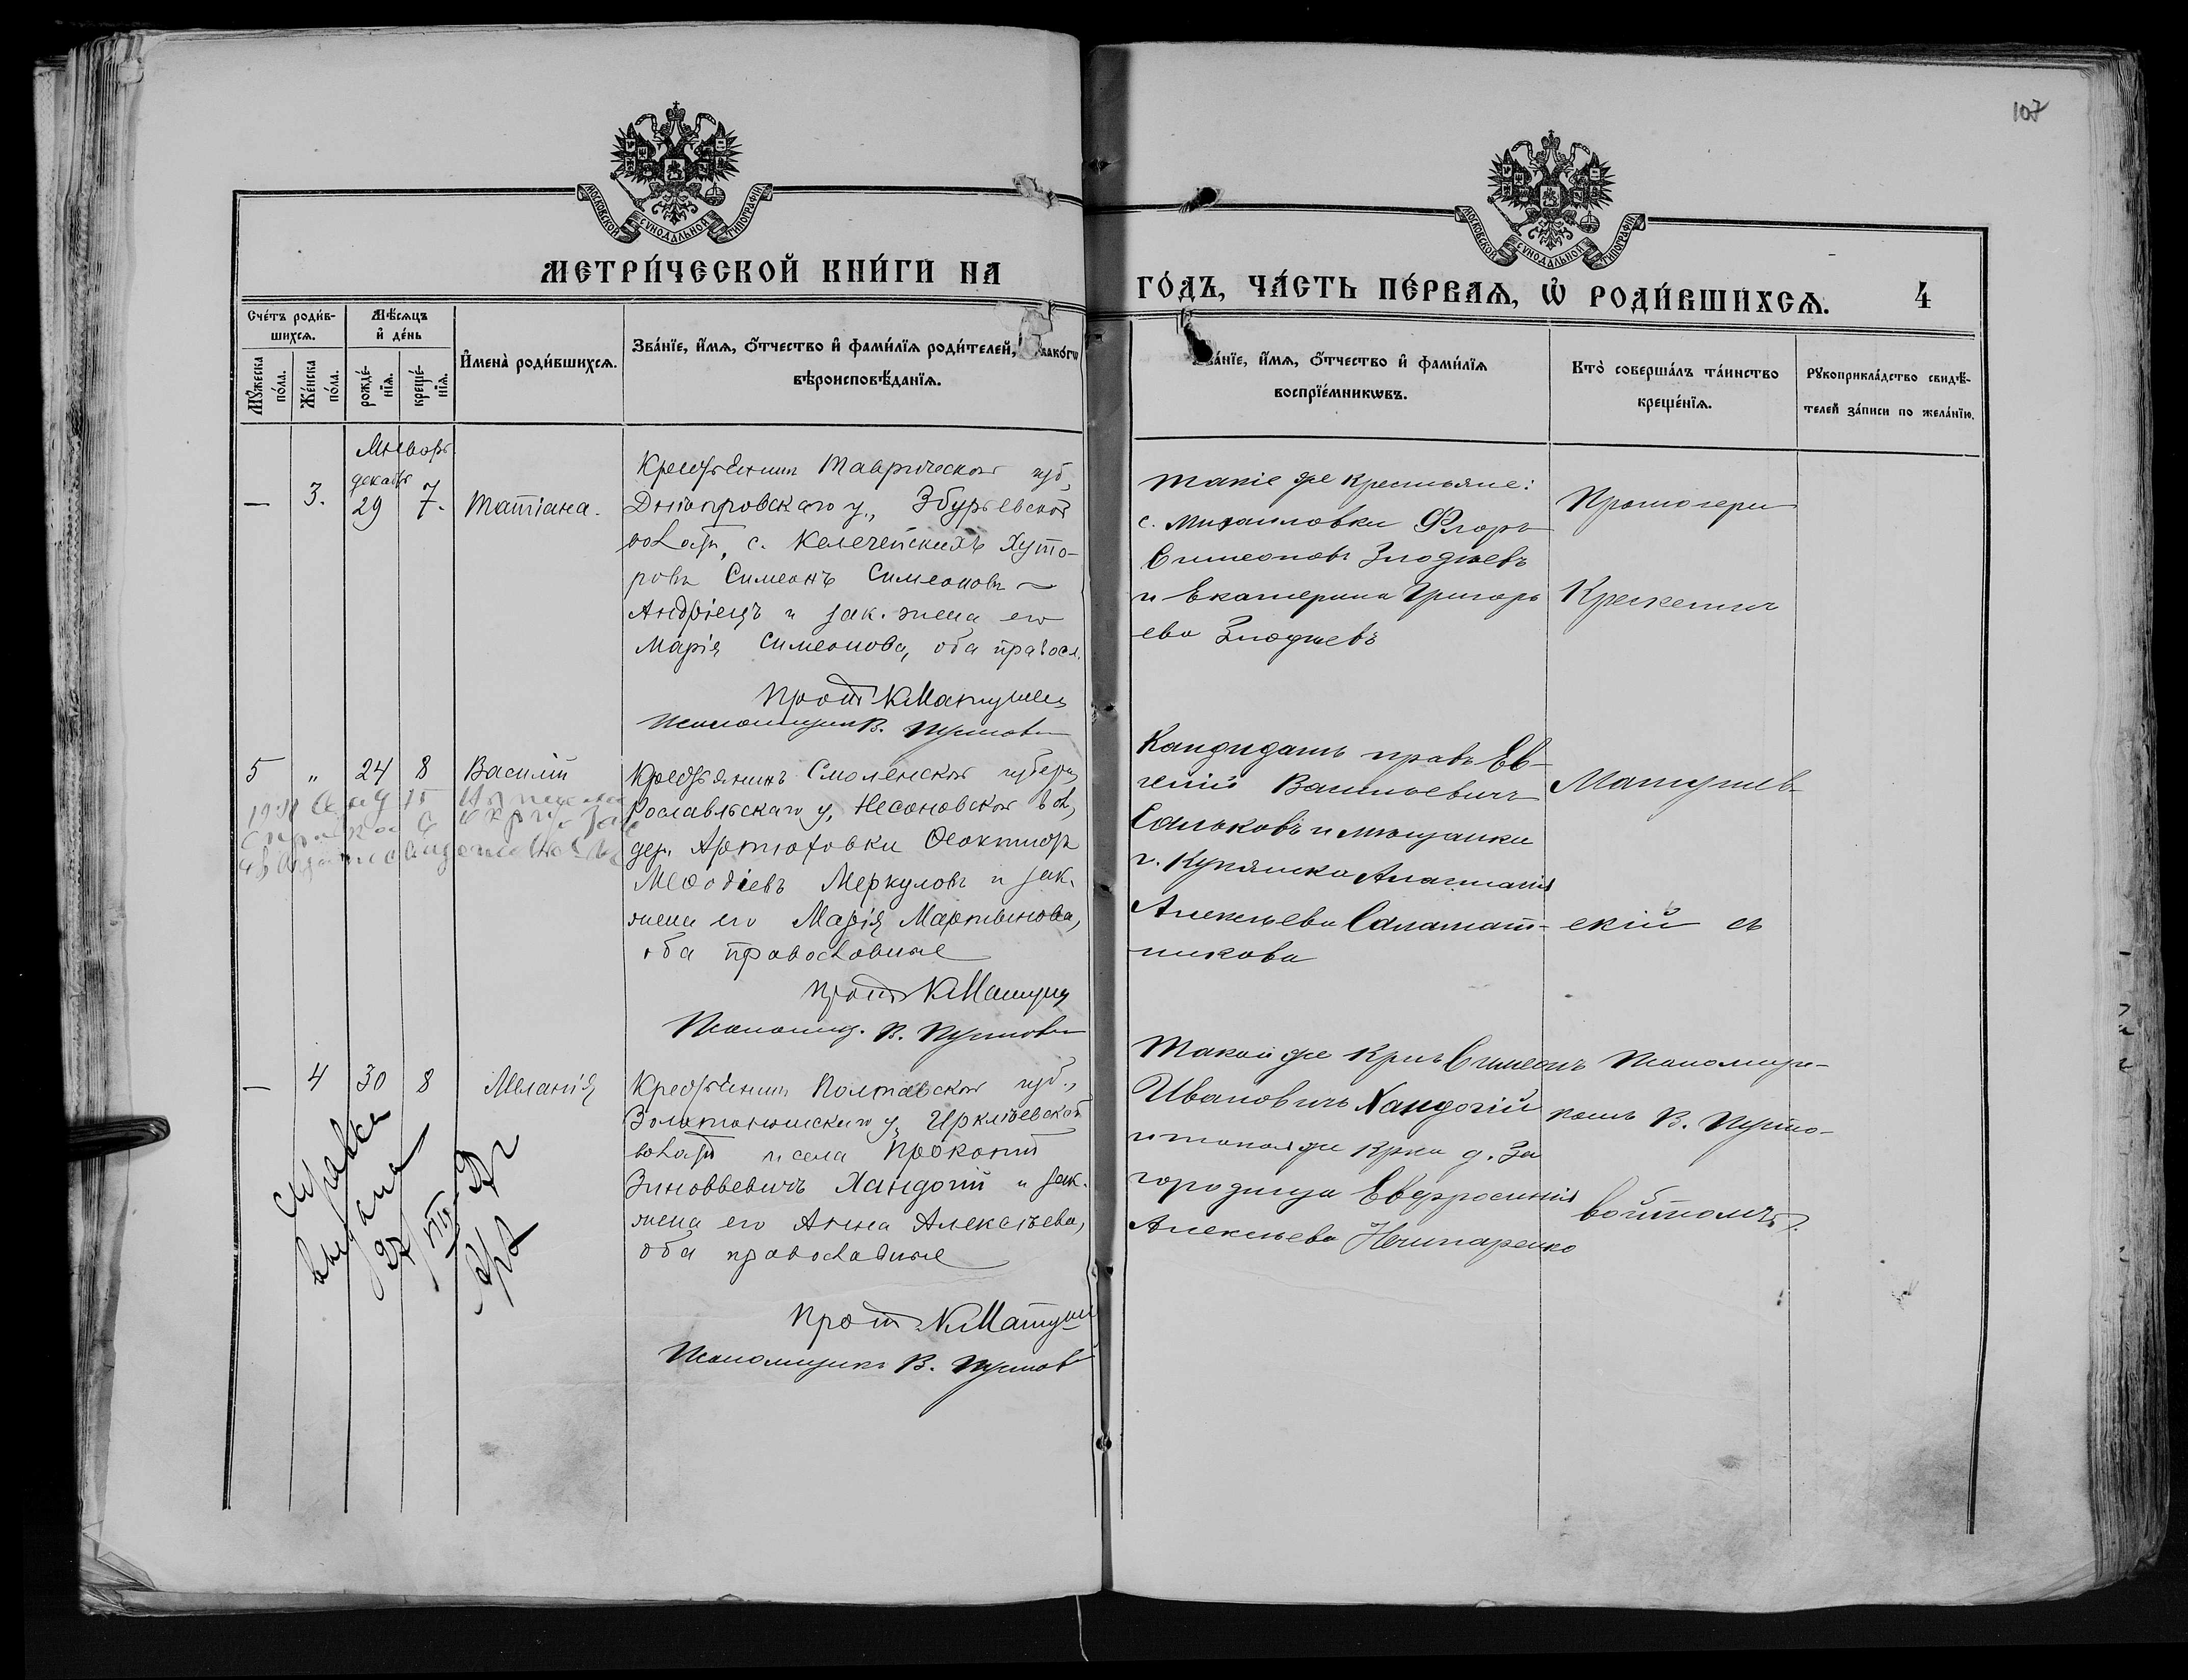 107
МОСКОВСКОЙ СѴНОДАЛЬНОЙ ТИПОГРАФІИ
МОСКОВСКОЙ СѴНОДАЛЬНОЙ ТИПОГРАФІИ
МЕТРИ́ЧЕСКОЙ КНИ́ГИ НА
ГО́ДЪ, ЧА́СТЬ ПЕ́РВАѦ, Ѡ РОДИ́ВШИХСѦ.
4
Сче́тъ роди́в-
шихсѧ.
Мꙋ́жеска
по́ла.
Же́нска
по́ла.
Мѣ́сѧцъ
и де́нь
рожде́-
нїѧ.
креще́-
нїѧ.
Имена̀ роди́вшихсѧ.
Зва́нїе, и́мѧ, ѻ́тчество и фами́лїѧ роди́телей,
вѣроисповѣ́данїѧ.
и́мѧ, ѻ́тчество и фами́лїѧ
воспрїе́мникѡвъ.
Кто̀ соверша́лъ та́инство
креще́нїѧ.
Рꙋкоприкла́дство свидѣ́-
телей за́писи по жела́нїю.
Январь
декабр
— 3. 29 7. Татіана.
Крестьянинъ Таврической губ.,
Днѣпровскаго у., Збурьевской
волости, с. Келегейскихъ Хуто-
ровъ Симеонъ Симеоновъ
Андріецъ и зак. жена его
Марія Симеонова, оба правосл.
Прот К Матушев
Псаломщикъ В. Пустов
Такіе же крестьяне:
с. Михаиловки Флоръ
Симеоновъ Злодѣевъ
и Екатерина Григорь
ева Злодѣевъ
Протоіерей
5 " 24 8 Василій
Крестьянинъ Смоленской губерн
Рославльскаго у,
дер. Артюховки Ѳеоктистъ
Меѳодіевъ Меркуловъ и зак.
жена его Марія Мартынова,
оба православные
Прот К Матуш
Псаломщ. В. Пустов
Кандидатъ правъ Ев-
геній Васильевичъ
Сальковъ и мѣщанка
г. Купянска Анастасія
Алексѣева Саламат-
никова
Матушев-
скій съ
— 4 30 8 Меланія
Крестьянинъ Полтавской губ.,
Золотоношскаго у, Ирклѣевской
волости и села Прокопій
Зиновьевичъ Хандогій и зак.
жена его Анна Алексѣева,
оба православные
Прот К Матуш
Псаломщикъ В. Пустов
Такой же Крнъ Симеонъ
Ивановичъ Хандогій
и такая же Крка д. За
городища Евфросинія
Алексѣева Нечипаренко
Псаломщи-
комъ В. Пусто-
войтомъ.
справка
выдана